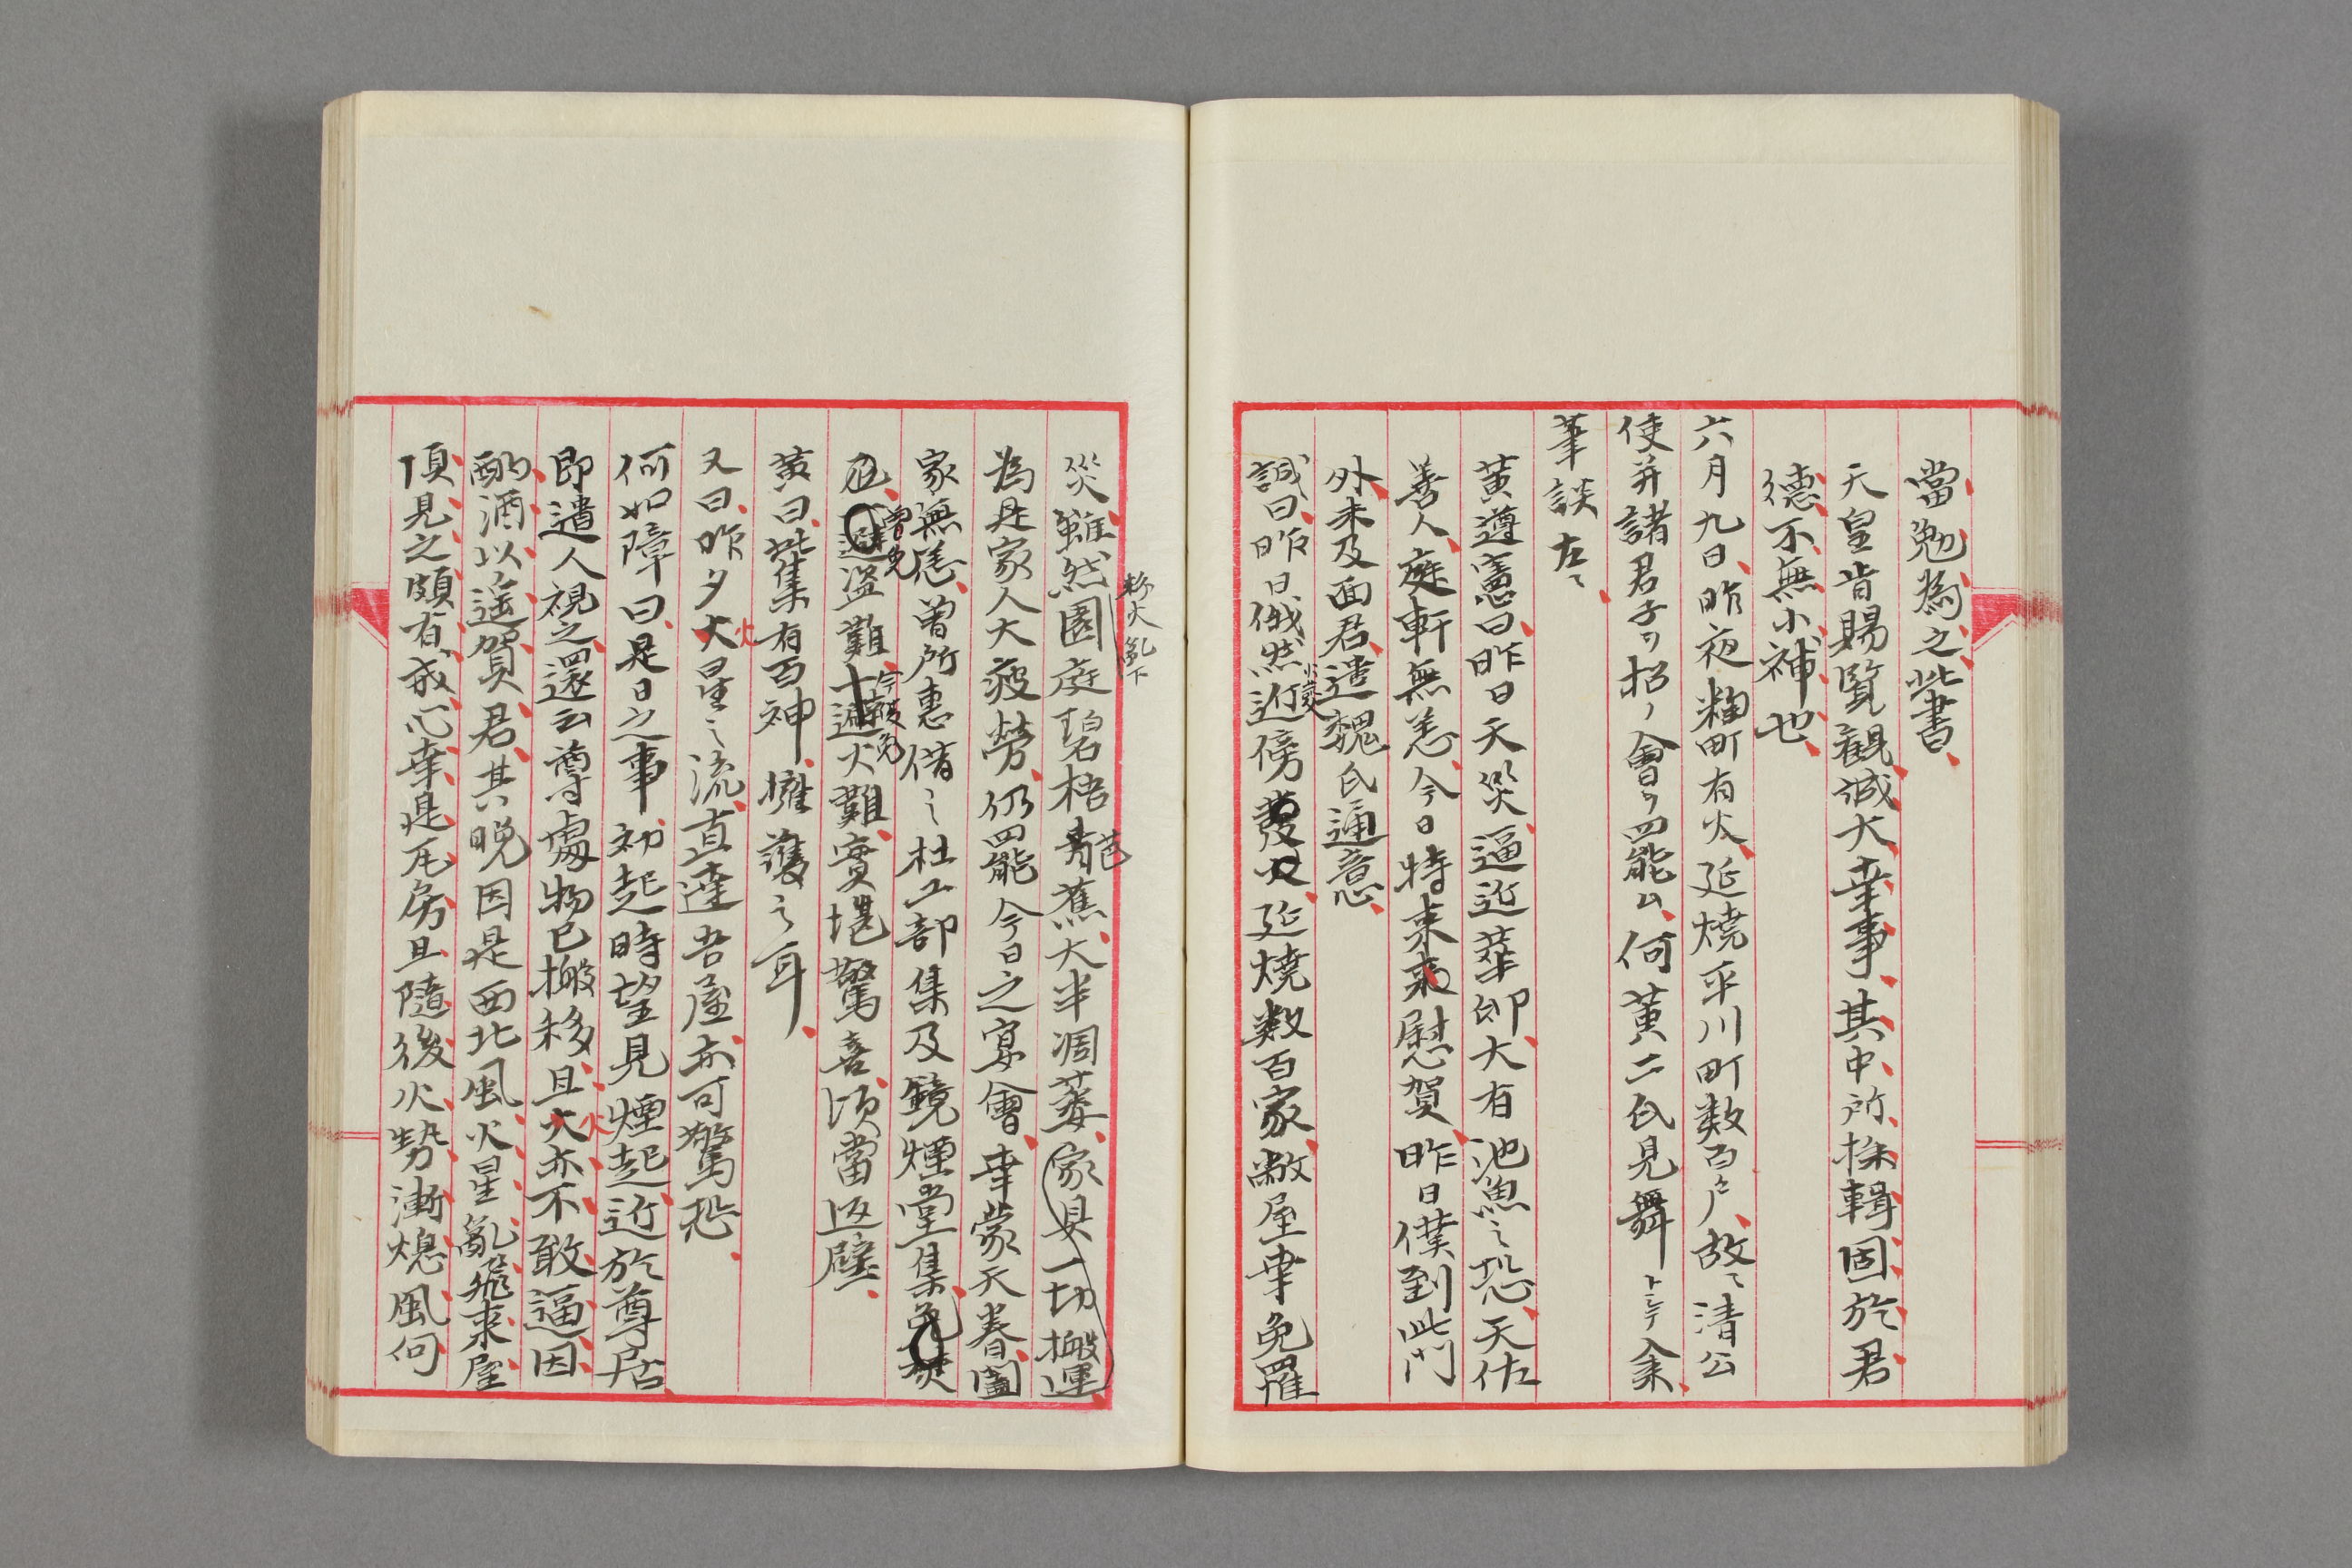 當勉為之此書
天皇肯賜覧観誠大幸事其中所採輯固於君
德不無小補也
六月九日昨夜麹町有火延燒平川町数百戶故ニ清公
使并諸君子ヲ招ノ會ヲ罷ム何黄二氏見舞トシテ入来
筆談左ニ
黄遵憲曰昨日天災逼近華邸大有池魚之恐天佑
善人庭軒無恙今日特来慰賀昨日僕到此門
外未及面君遣魏氏通意
誠曰昨日俄然近傍延燒数百家敝屋幸免罹
災雖然園庭碧梧芭蕉大半凋萎家具一切搬運
粉火亂下
為是家人大疲勞仍罷今日之宴會幸蒙天眷闔
家無恙曾所惠借之杜工部集及鏡煙堂集免焚
厄曾免盜難今被免火難實堪驚喜須當返璧
黄曰此集有百神擁護之耳
又曰昨夕火星之流直達吾屋亦可驚恐
何如障曰是日之事初起時望見煙起近於尊居
即遣人視之還云尊處物已搬移且火亦不敢逼因
酌酒以遥賀君其晩因是西北風火星亂飛来屋
頂見之頗有戒心幸是瓦房且隨後火勢漸熄風向